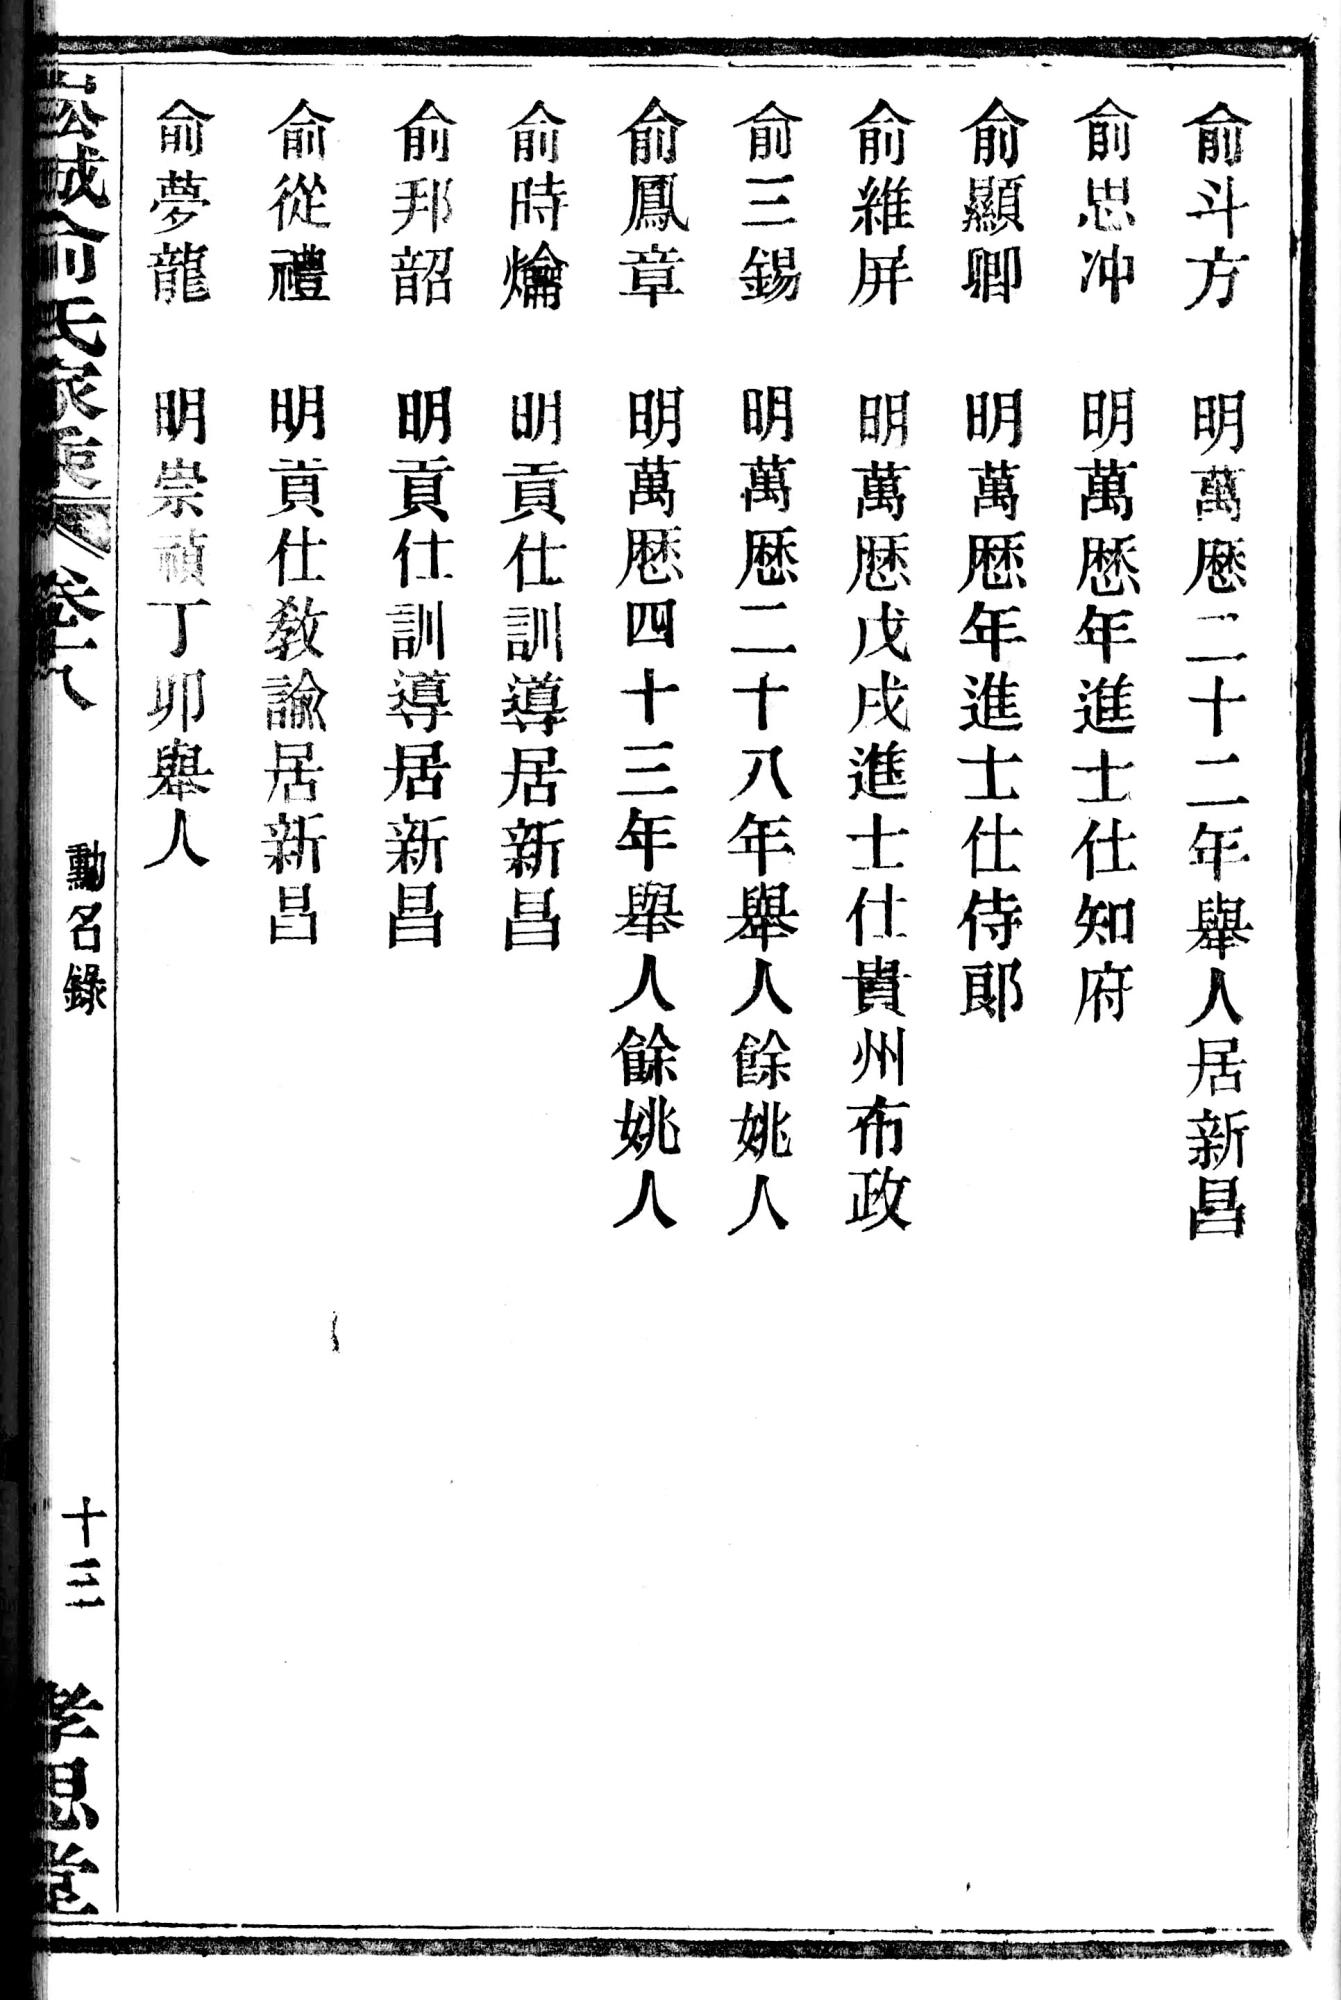 俞斗方　明萬厯二十二年舉人居新昌
俞思冲　明萬厯年進士仕知府
俞顯卿　明萬厯年進士仕侍郎
俞維屏　明萬厯戊戌進士仕貴州布政
俞三錫　明萬厯二十八年舉人餘姚人
俞鳳章　明萬厯四十三年舉人餘姚人
俞時爚　明貢仕訓導居新昌
俞邦韶　明貢仕訓導居新昌
俞從禮　明貢仕教諭居新昌
俞夢龍　明崇禎丁卯舉人
城俞氏家乘　卷十八　勳名錄　十三　孝思堂